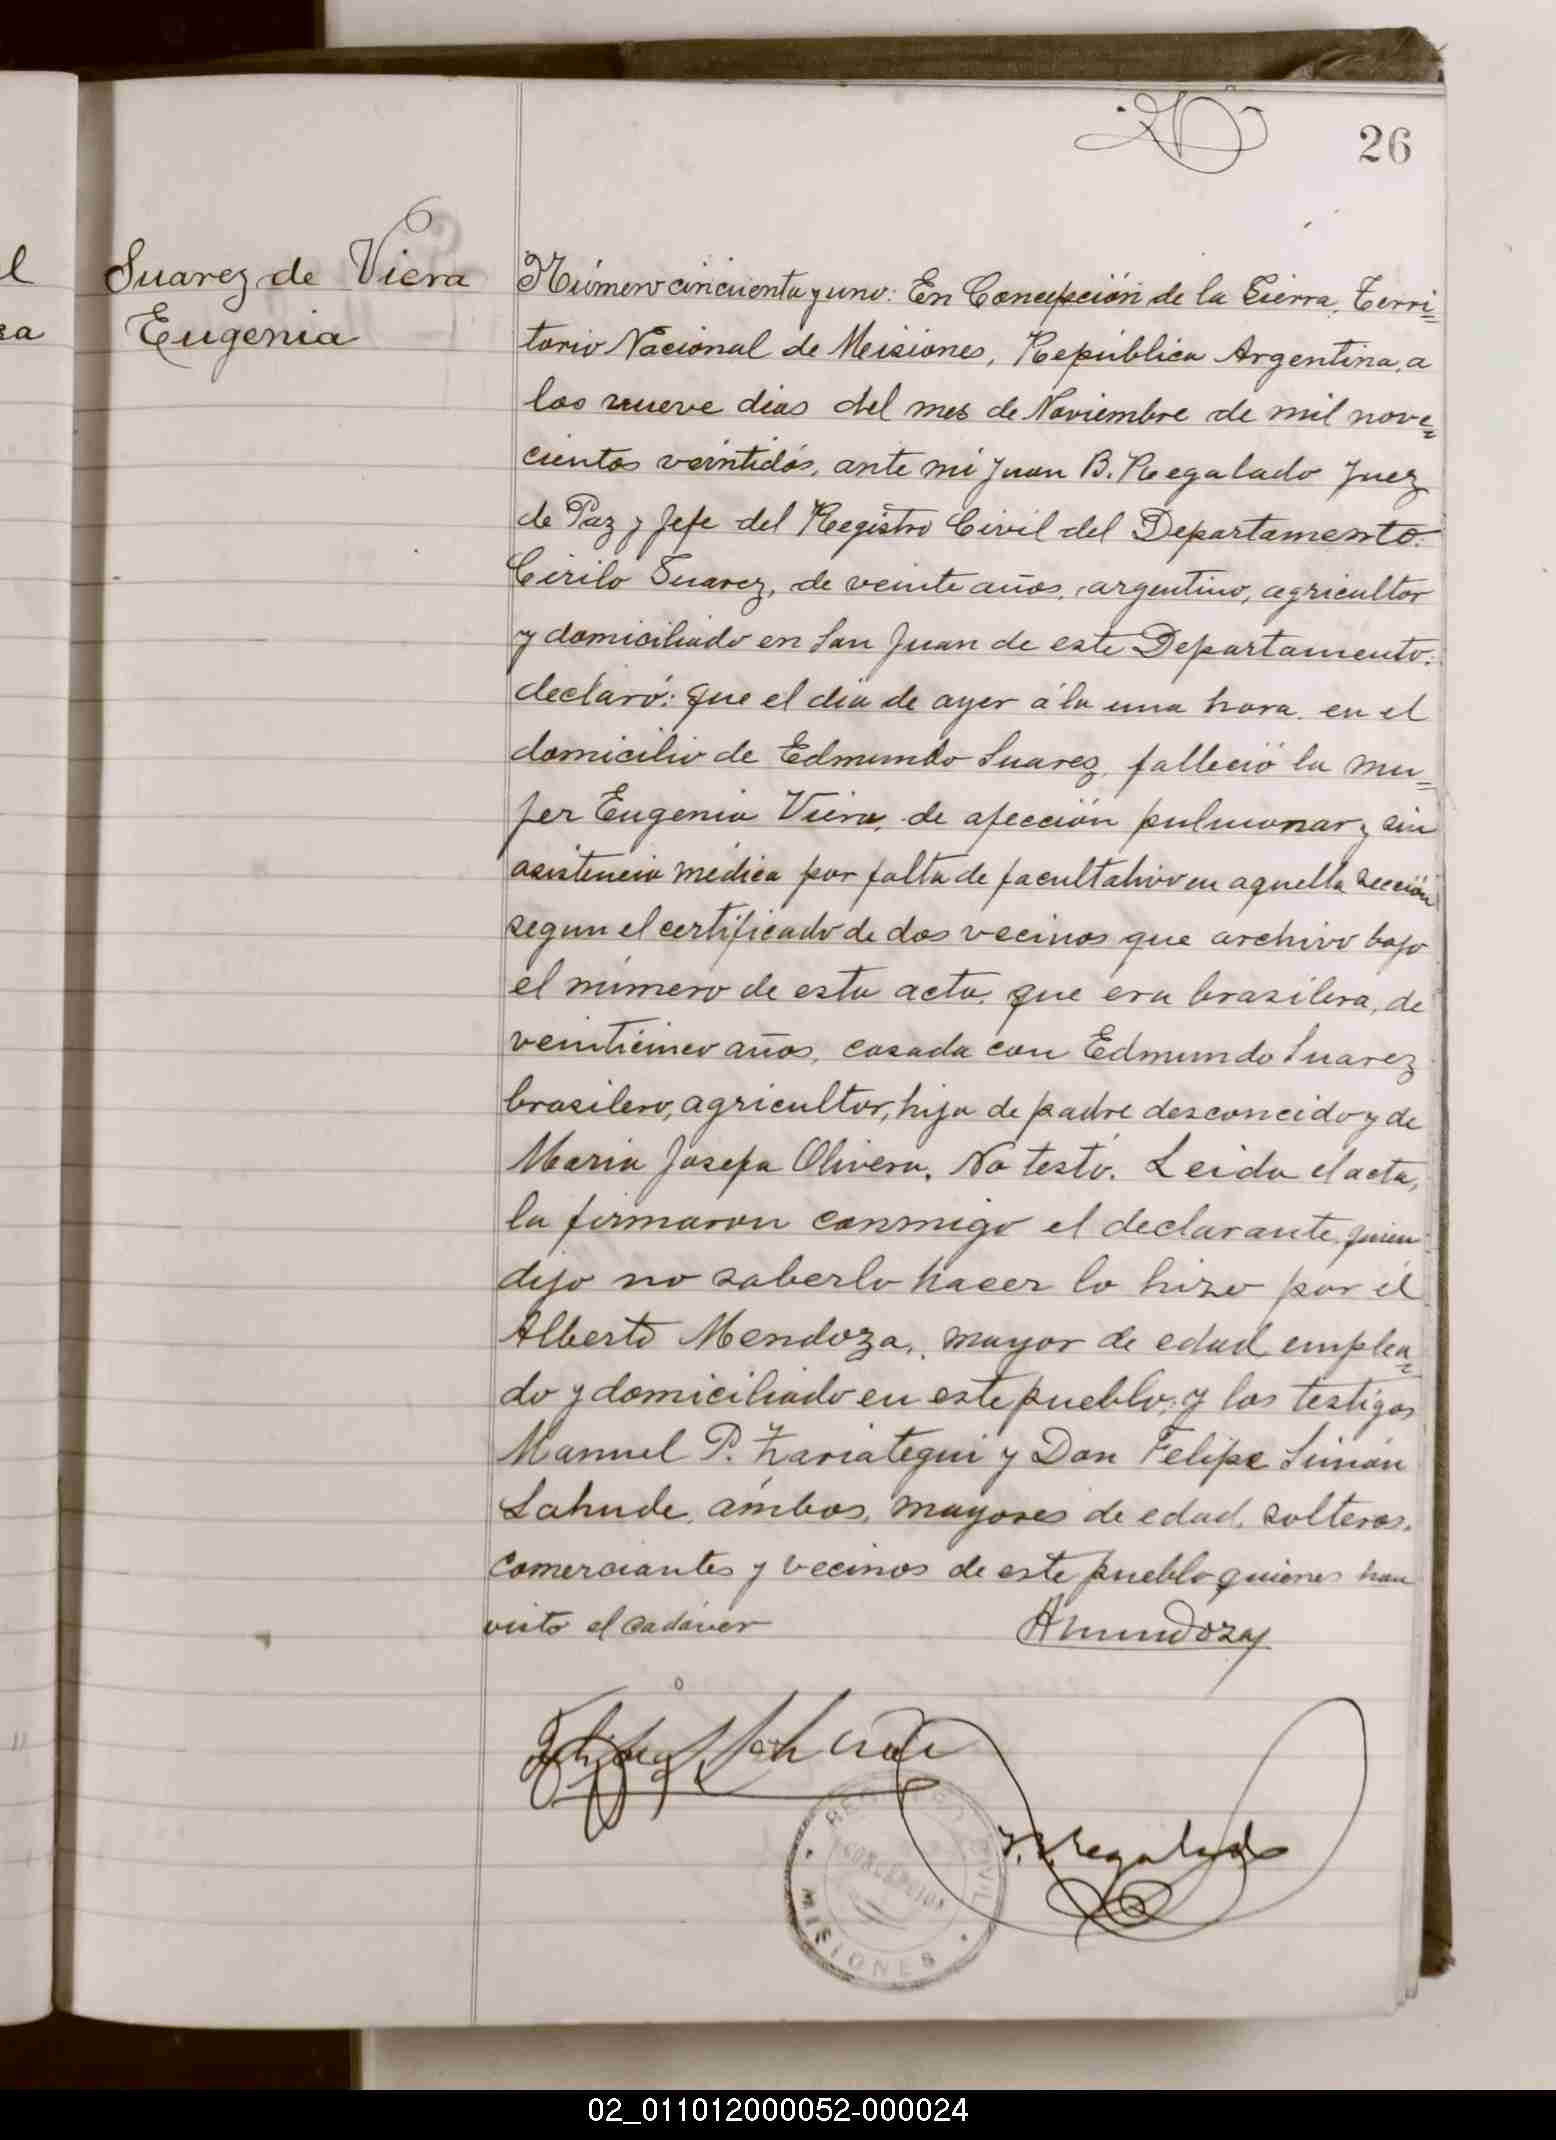 26
l
sa
Suarez de Viera
Eugenia
Número cincuenta y uno: En Concepción de la Sierra, Terri=
torio Nacional de Misiones, República Argentina, a
los nueve dias del mes de Noviembre de mil nove=
cientos veintidós, ante mi Juan B. Regalado Juez
de Paz y Jefe del Registro Civil del Departamento:
Cirilo Suarez, de veinte años, argentino, agricultor
y domiciliado en San Juan de este Departamento:
declaró: que el dia de ayer á la una hora, en el
domicilio de Edmundo Suarez, falleció la mu=
jer Eugenia Viera, de afección pulmonar y sin
asistencia médica por falta de facultativo en aquella sección
segun el certificado de dos vecinos que archivo bajo
el número de esta acta, que era brasilera, de
veinticinco años, casada con Edmundo Suarez
brasilero, agricultor, hija de padre desconcido y de
Maria Josefa Olivera. No testó. Leida el acta,
la firmaron conmigo el declarante, quien
dijo no saberlo hacer lo hizo por él
Alberto Mendoza, mayor de edad, emplea=
do y domiciliado en este pueblo, y los testigos
Manuel P. Zariategui y Don Felipe Simón
Lahude, ámbos, mayores de edad, solteros,
comerciantes y vecinos de este pueblo quienes han
visto el cadáver
AMendoza
Felipe S. Lahude
J. B. Regalado
REGISTRO CIVIL
CONCEPCION
MISIONES
02_011012000052-000024